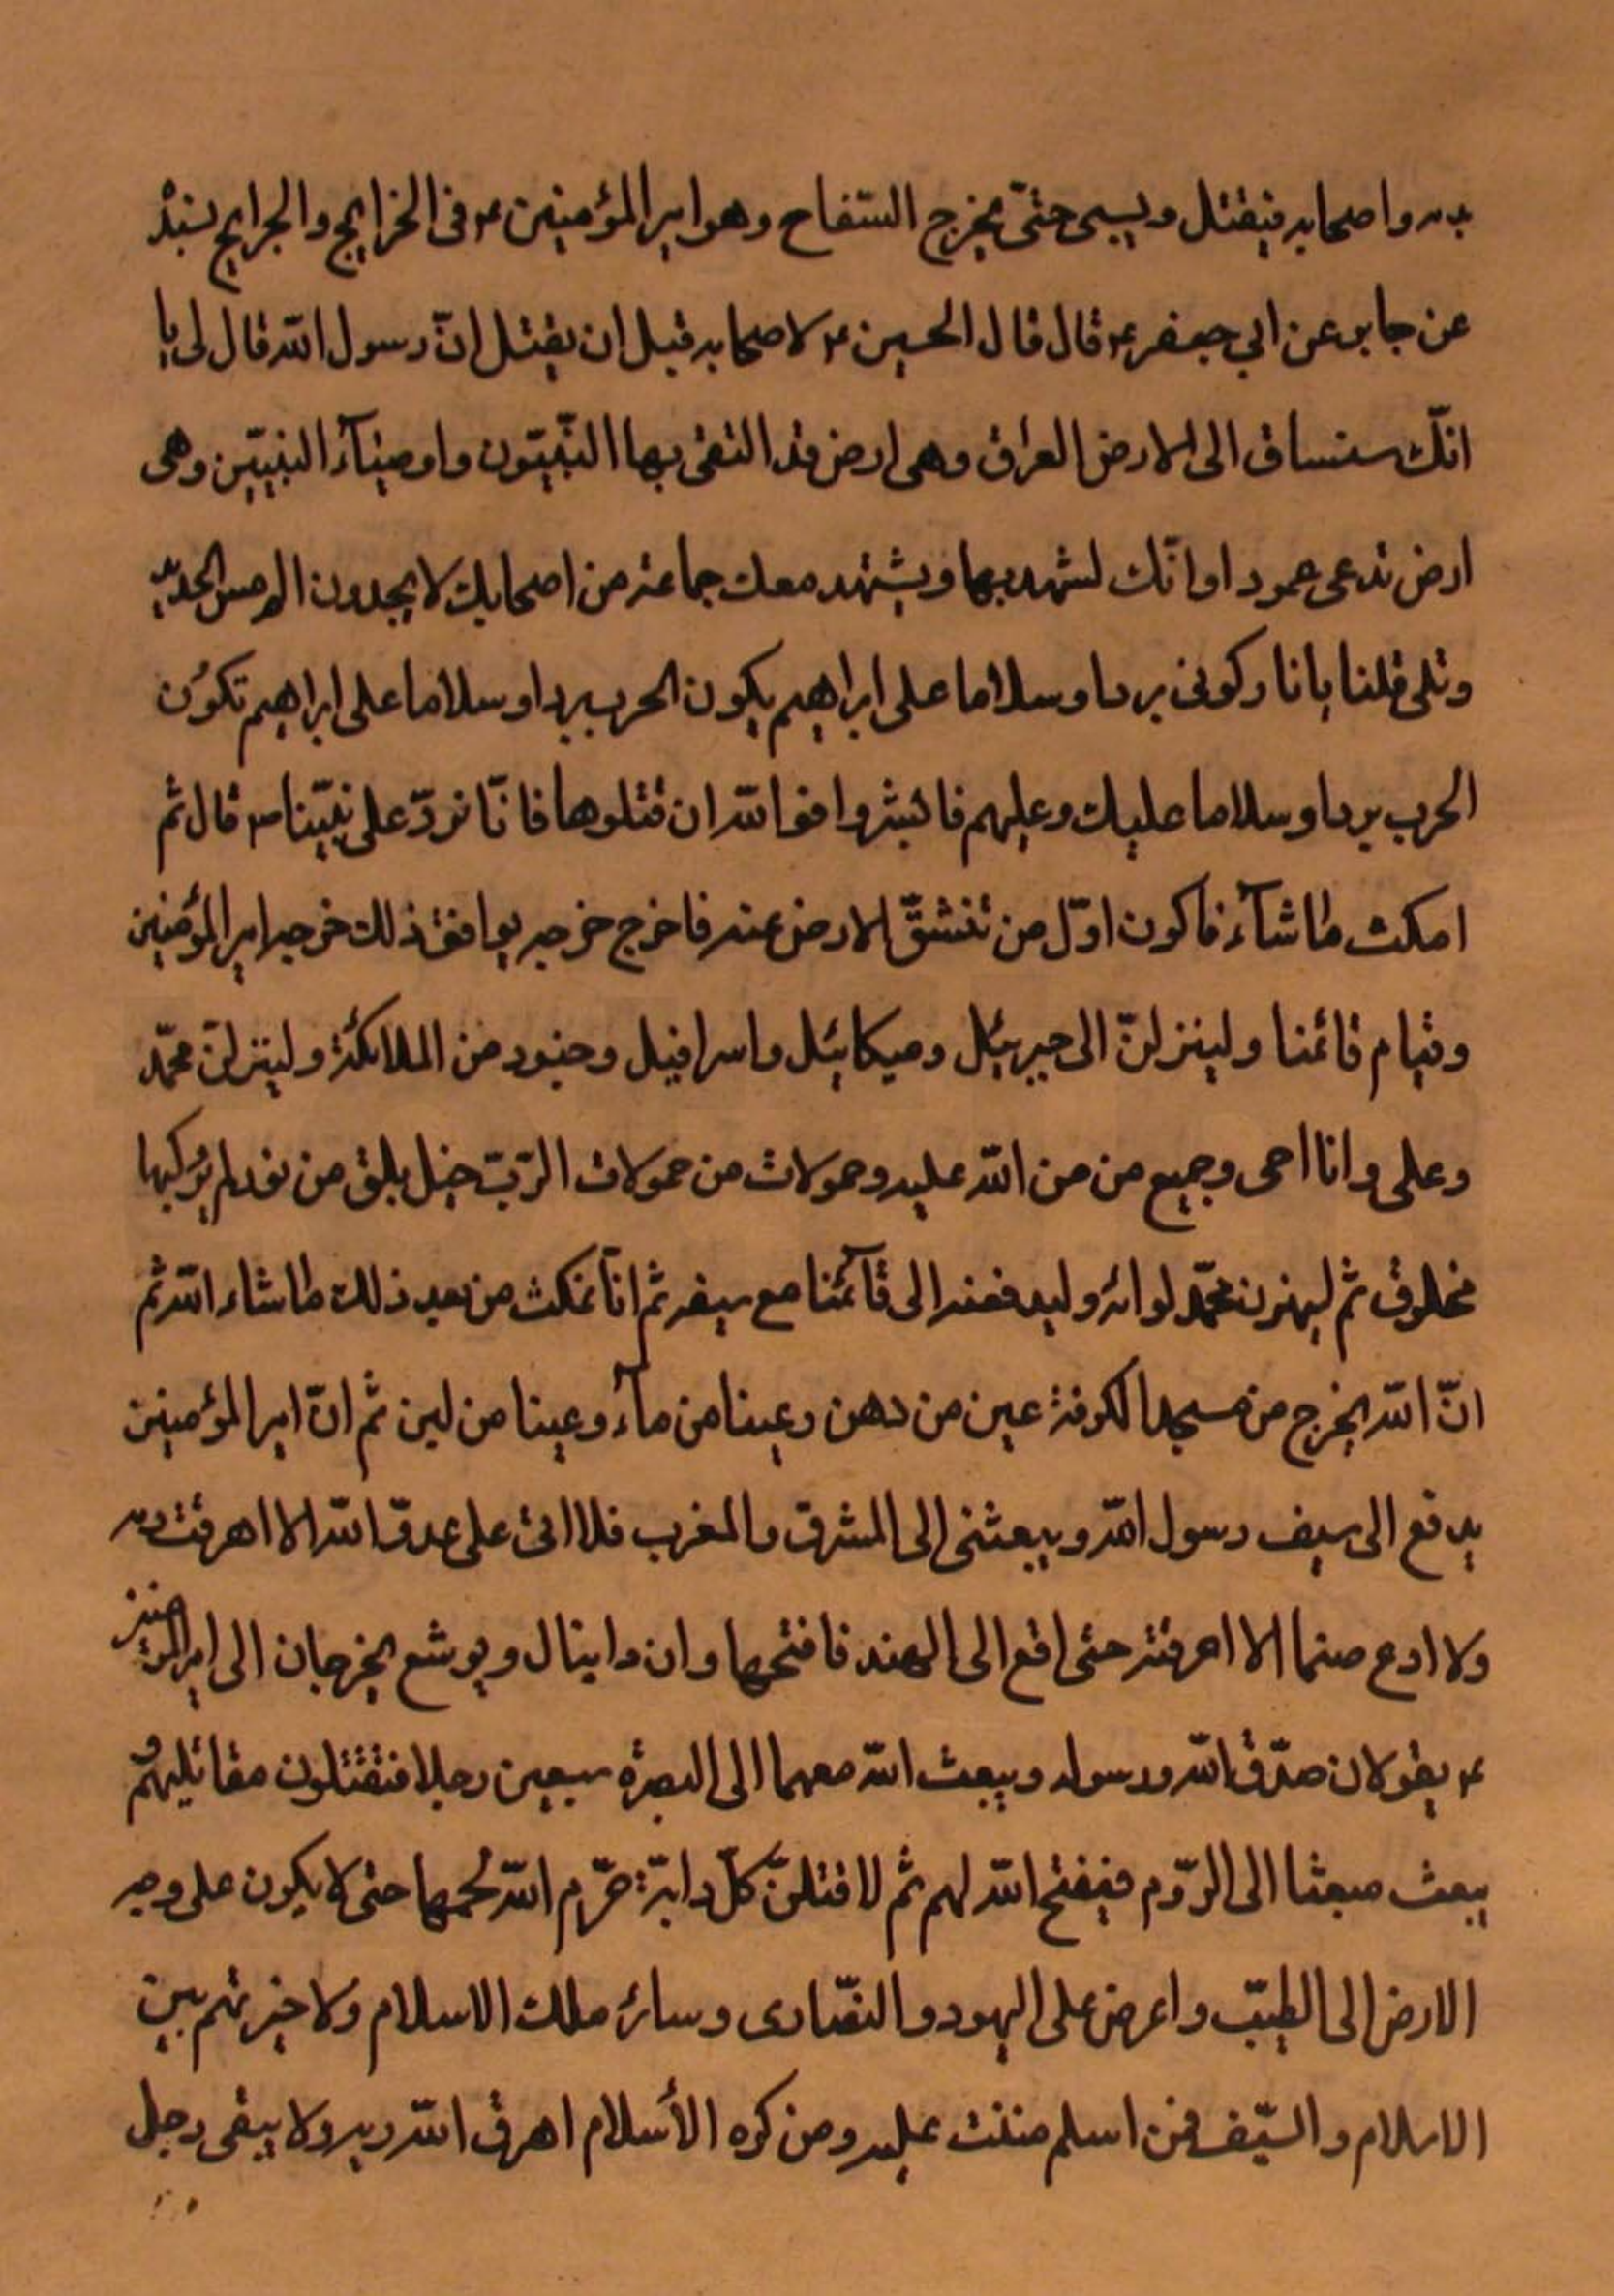 بدمه واصحابه فيقتل ويسبى حتّى يخرج السّفاح وهو امير المؤمنين ء فى الخرايج والجرايج بسنده
عن جابر عن ابي جعفر ء قال قال الحسين ء لاصحابه قبل ان يقتل انّ رسول الله قال لى يا
انّك ستساق الى الارض العراق وهى ارض قد التقى بها النّبيّون واوصيآء النبيّين وهى
ارض تدعى عمودا وانّك لشهد بها ويشتهد معك جماعة من اصحابك لا يجدون الم مس الحديد
وتلى قلنا يا نار كونى بردا وسلاما على ابراهيم يكون الحرب بردا وسلاما على ابراهيم تكون
الحرب بردا وسلاما عليك وعليهم فابشروا فوالله ان قتلوها فانّا نردّ على نبيّنا ص قال ثم
امكث ما شآء فاكون اوّل من تنشقّ الارض عنه فاخرج خرجه يوافق ذلك خرجه امير المؤمنين
وقيام قائمنا ولينزلنّ الى جبرئيل وميكائيل واسرافيل وجنود من الملائكة ولينزلنّ محمّد
وعلى وانا اخى وجميع من من الله عليه وحمولات من حمولات الرّبّ خيل بلق من نور لم يركبها
مخلوق ثم ليهزن محمّد لوائه وليدفعنه الى قآئمنا مع سيفه ثم انّا نمكث من بعد ذلك ما شاء الله ثم
انّ الله يخرج من مسجد الكوفة عين من دهن وعينا من مآء وعينا من لبن ثم انّ امير المؤمنين
يدفع الى سيف رسول الله ويبعثنى الى المشرق والمغرب فلا اتى على عدوّ الله الا اهرقت دمه
ولا ادع صنما الا احرقته حتى اقع الى الهند فافتحها وان دانيال ويوشع يخرجان الى امير المؤمنين
ء يقولان صدّق الله ورسوله ويبعث الله معهما الى البصرة سبعين رجلا فتقتلون مقاتليهم و
يبعث مبعثا الى الرّوم فيفتح الله لهم ثم لاقتلنّ كلّ دابّة حرّم الله لحمها حتى لا يكون على وجه
الارض الى الطيّب واعرض على اليهود والنصّارى وسائر ملك الاسلام ولاخيرنهم بين
الاسلام والسّيف فمن اسلم مننت عليه ومن كره الأسلام اهرق الله دمه ولا يبقى رجل